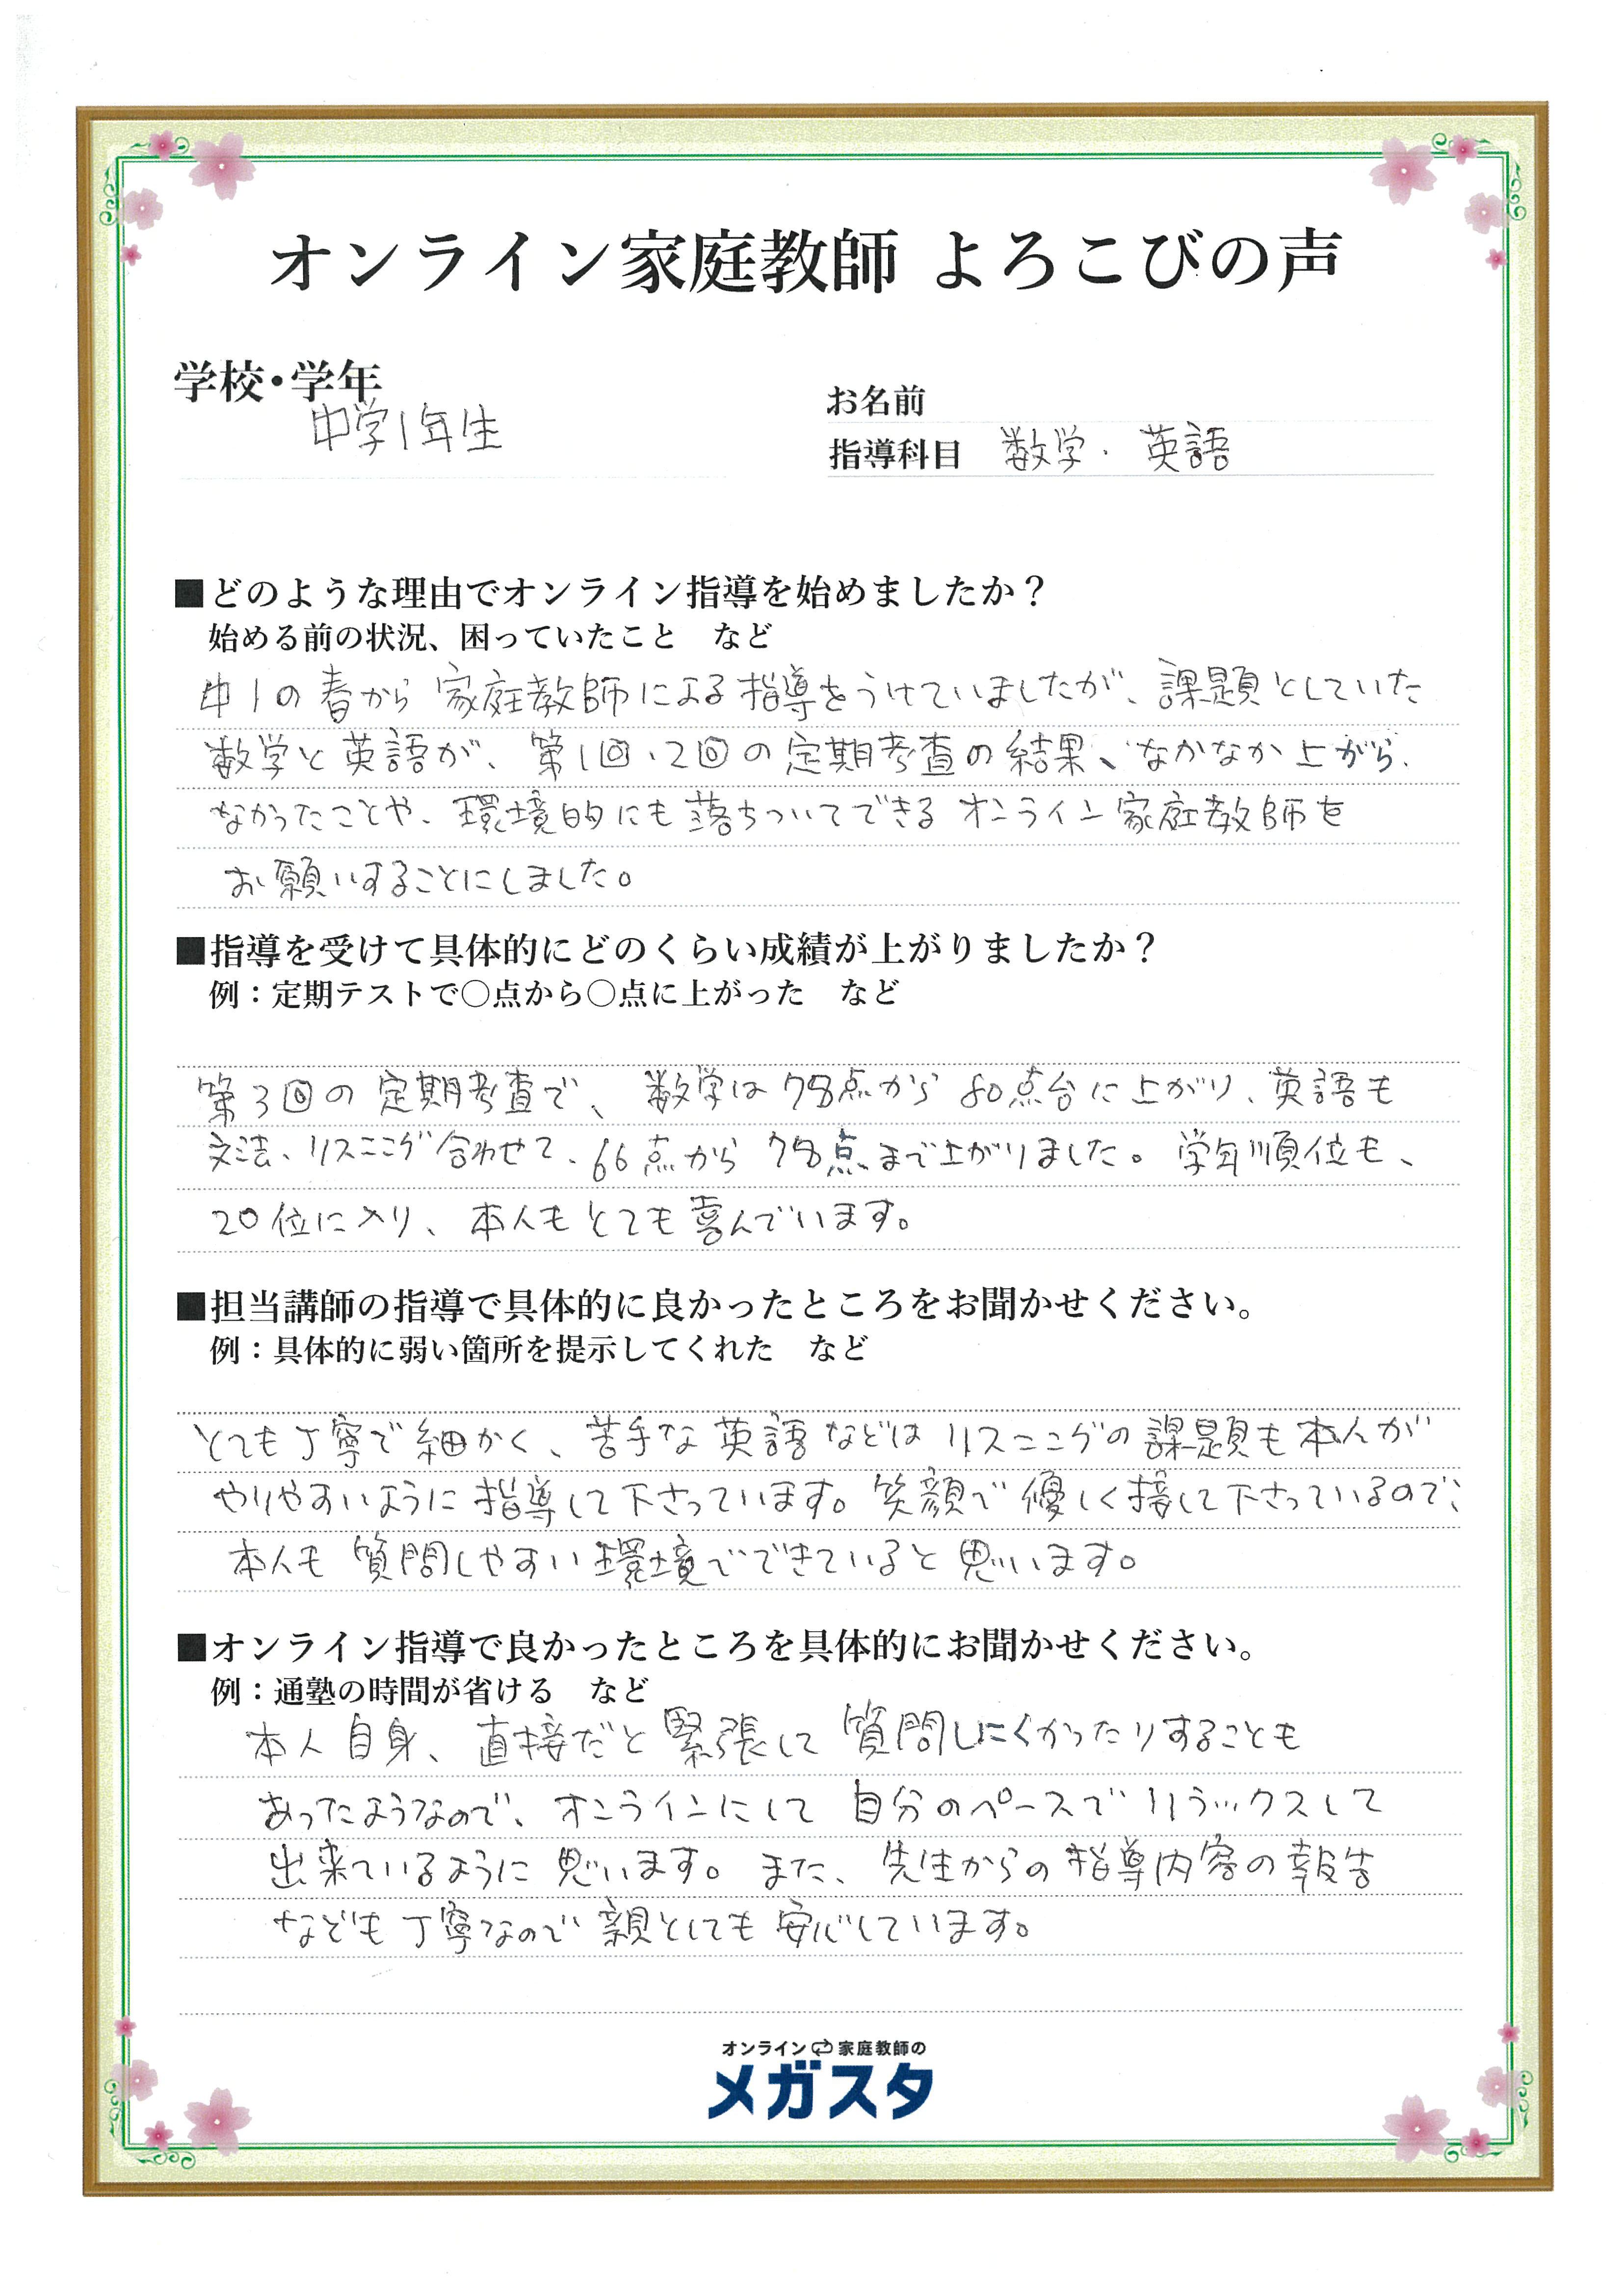 オンライン家庭教師 よろこびの声
学校・学年
中学1年生
お名前
指導科目 数学・英語
■どのような理由でオンライン指導を始めましたか？
始める前の状況、困っていたこと　など
中1の春から家庭教師による指導をうけていましたが、課題としていた
数学と英語が、第1回、2回の定期考査の結果、なかなか上がら
なかったことや、環境的にも落ちついてできるオンライン家庭教師を
お願いすることにしました。
■指導を受けて具体的にどのくらい成績が上がりましたか？
例：定期テストで〇点から〇点に上がった　など
第3回の定期考査で、数学は78点から80点台に上がり、英語も
文法、リスニング合わせて、66点から78点まで上がりました。学年順位も、
20位に入り、本人もとても喜んでいます。
■担当講師の指導で具体的に良かったところをお聞かせください。
例：具体的に弱い箇所を提示してくれた　など
とても丁寧で細かく、苦手な英語などはリスニングの課題も本人が
やりやすいように指導して下さっています。笑顔で優しく接して下さっているので、
本人も質問しやすい環境でできていると思います。
■オンライン指導で良かったところを具体的にお聞かせください。
例：通塾の時間が省ける　など
本人自身、直接だと緊張して質問しにくかったりすることも
あったようなので、オンラインにして自分のペースでリラックスして
出来ているように思います。また、先生からの指導内容の報告
なども丁寧なので親としても安心しています。
オンライン家庭教師の
メガスタ